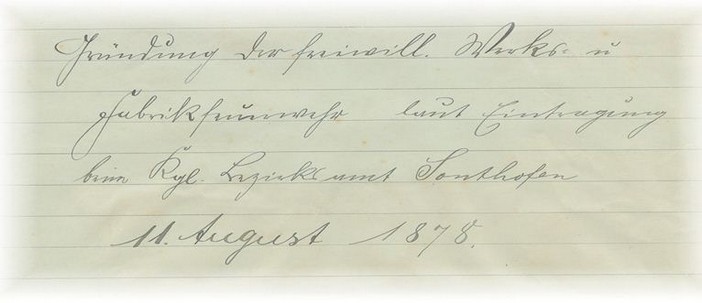 Gründung der freiwill. Werks- u
Fabrikfeuerwehr laut Eintragung
beim Kgl. Bezirksamt Sonthofen
11. August 1878.